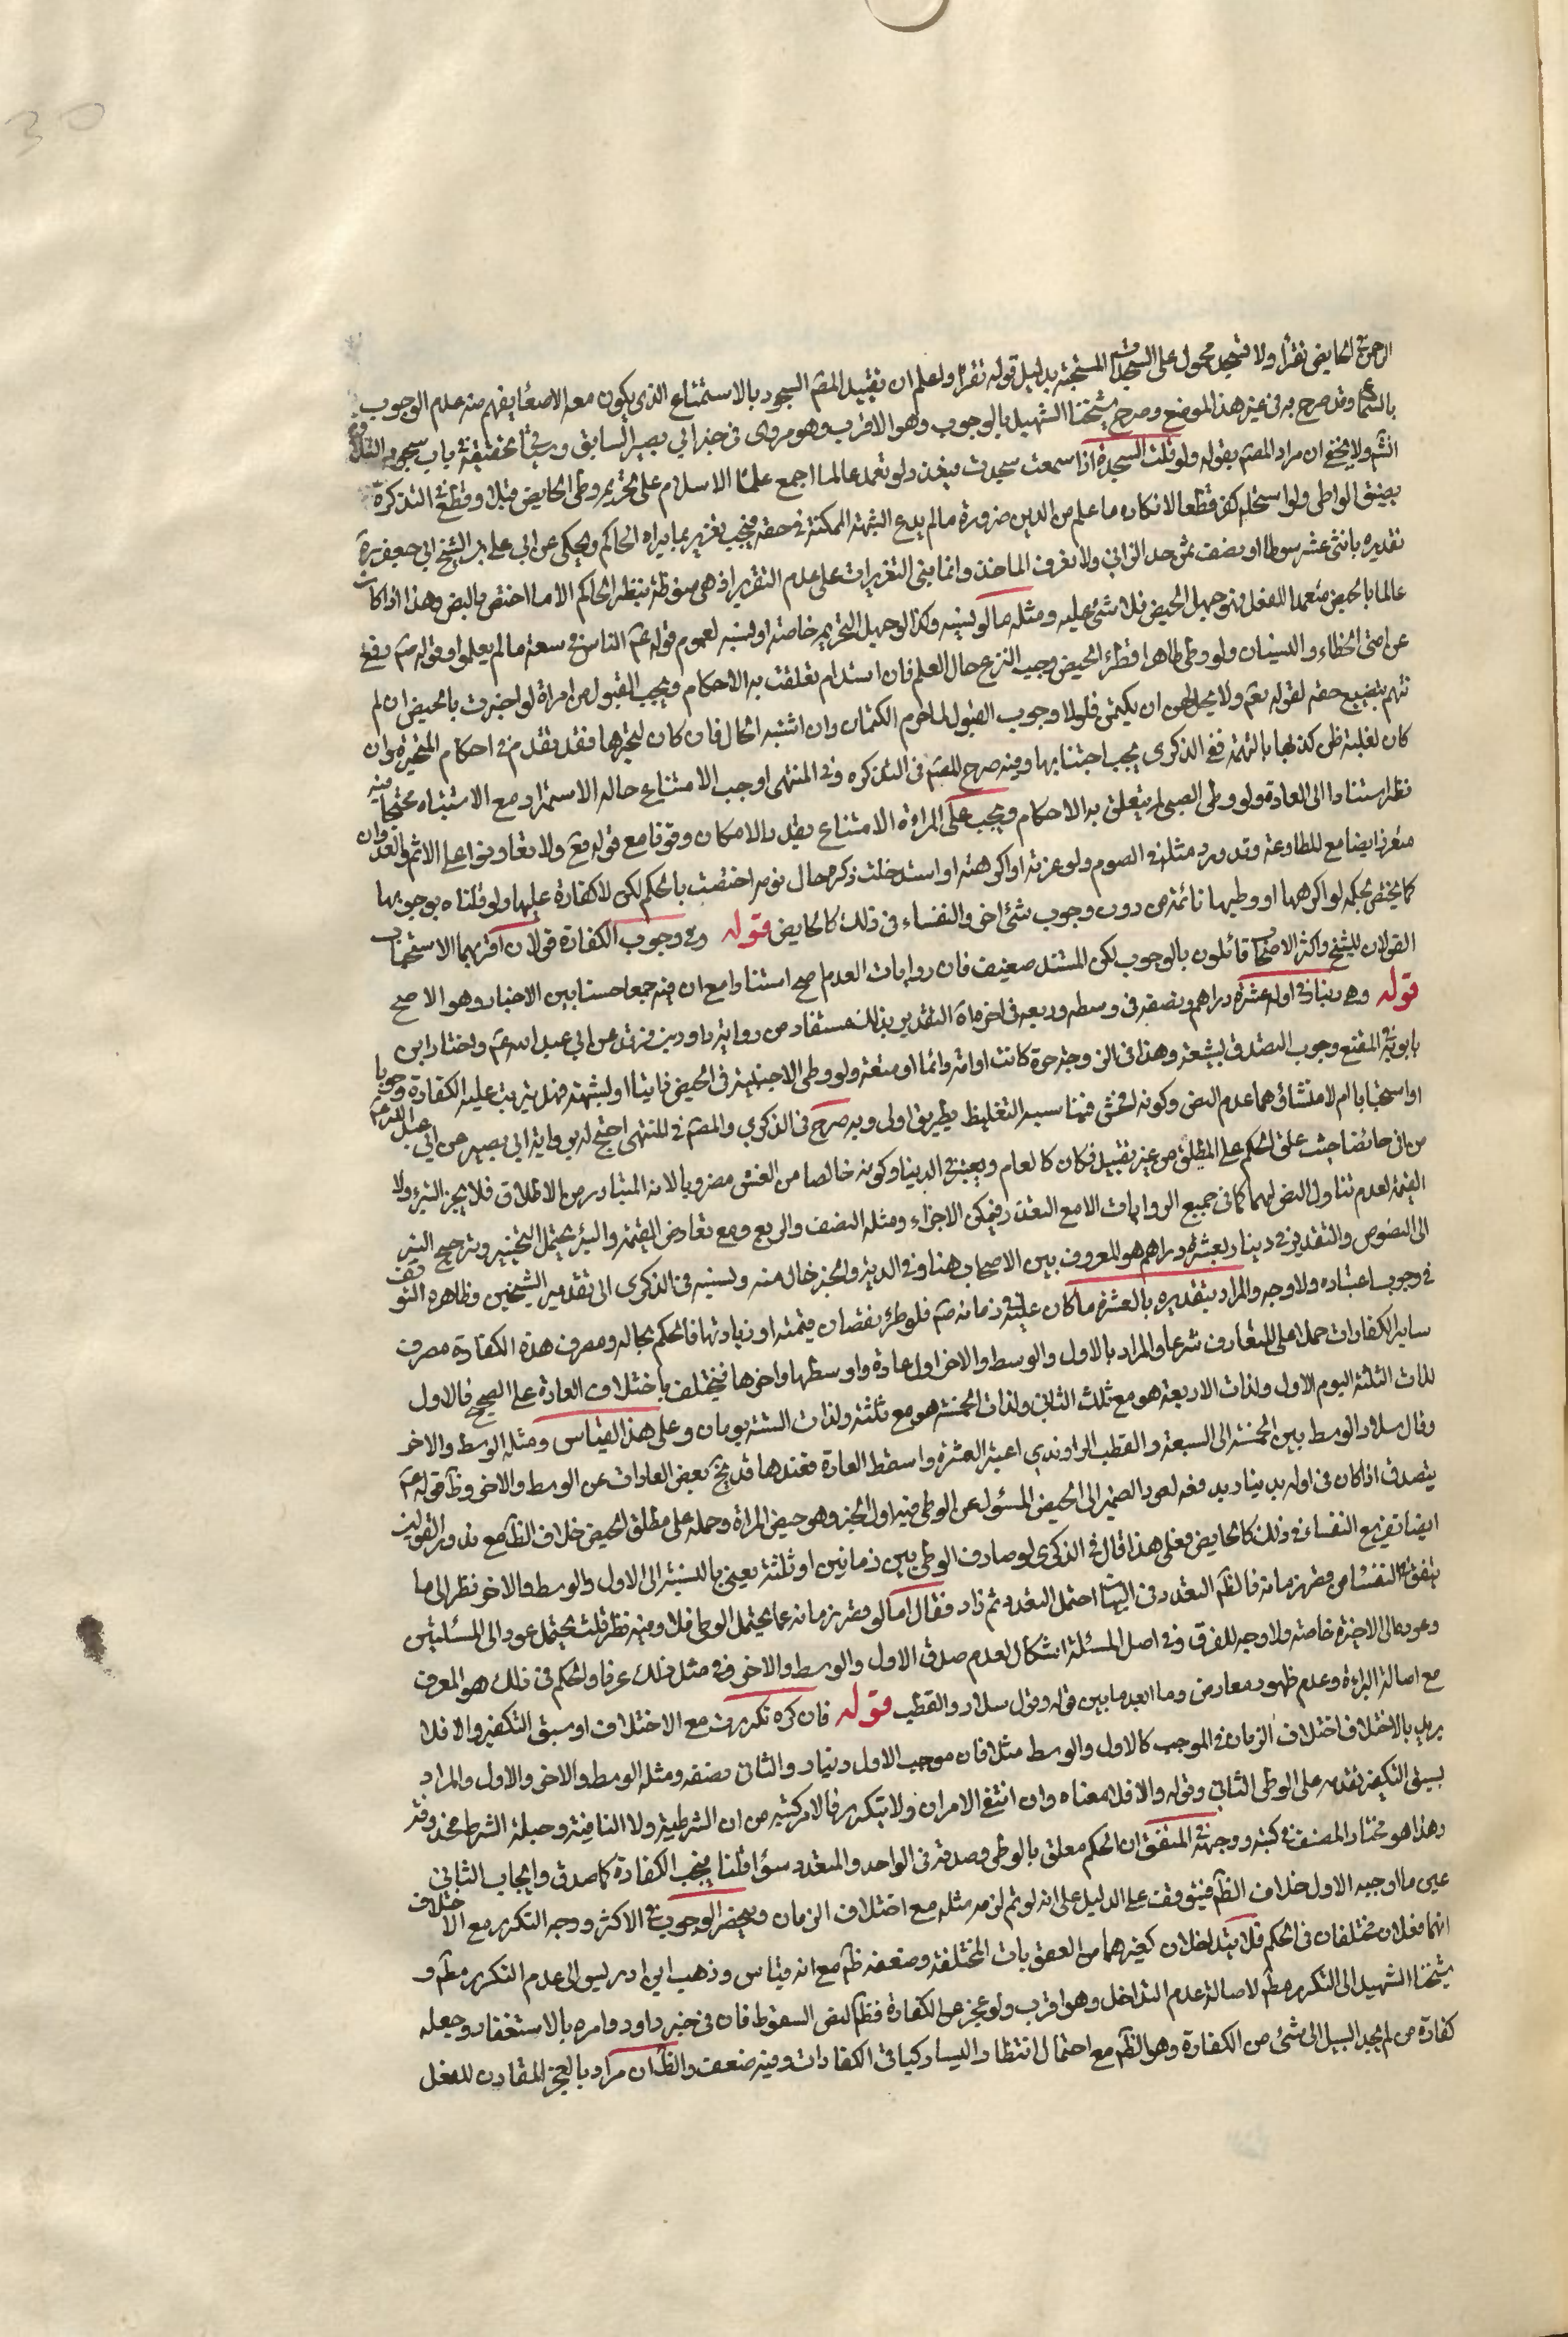 الرحمن عن الحايض تقرأ ولا تسجد محمول على السجدات المستحبة بدليل قوله تقرأ ولعلم ان تقييد المصّ السجود بالاستمتاع الذي يكون معه الاصغأ يفهم منه عدم الوجوب
بالسماع وقد صرح به في غير هذا الموضع وصرح شيخنا الشهيد بالوجوب وهو الاقرب وهو مروى في خبر ابي بصير السابق وسيجئ تحقيقه في باب سجود التلاوة
انشّ ولا يخفى ان مراد المصّ بقوله ولو قلت السجدة اذا سمعت سجدت قوله ولو تعمد عالما اجمع علمأ الاسلام على تحريم وطى الحايض قبلا وقطع في التذكرة
بفسق الواطى ولو استحله كفر قطعا لانكاره ما علم من الدين ضرورة ما لم يدع الشبهة الممكنة في حقه فيجب تعزيره بما يراه الحاكم ويحكى عن ابي علي بن الشيخ ابي جعفر ره
تقديره باثنى عشر سوطا او بضف ثمن حد الزاني ولا نعرف الماخذ وانما بنى التعزيرات على عدم التقدير اذ هي منوطة بنظر الحاكم الا ما اختص بالنص وهذا اذا كان
عالما بالحيض متعمدا للفعل فلو جهل الحيض فلا شئ عليه ومثله ما لو نسيه وكذا لو جهل التحريم خاصة او نسيه لعموم قوله عّ الناس في سعة ما لم يعلموا وقوله صّ رفع
عن امتى الخطاء والنسيان ولو وطى طاهرا فطرء الحيض وجب النزع حال العلم فان استدام تعلقت به الاحكام ويجب القبول من امراة لو اخبرت بالحيض ان لم
تتهم بتضييع حقه لقوله تعّ ولا يحل لهن ان يكتمن فلولا وجوب القبول لما حرم الكتمان وان اشتبه الحال فان كان لتحيرها فقد تقدم في احكام المتحيرة وان
كان لغلبة ظن كذبها بالتهمة ففى الذكرى يجب اجتنابها وفيه صرح المصّ في التذكره وفي المنتهى اوجب الامتناع حاله الاستمرار مع الاشتباه محتجا فيه
نظر استنادا الى العادة ولو وطى الصبى لم يتعلق به الاحكام ويجب على المراة الامتناع بقدر الامكان وقوفا مع قوله تعّ ولا تعاونوا على الاثم والعدوان
فتعزر ايضا مع المطاوعة وقد ورد مثله في الصوم ولو غرته او اكرهته او استدخلت ذكره حال نومه اختصت بالحكم لكن لا كفارة عليها ولو قلناه بوجوبها
كما يختص بحكمه لو اكرهها او وطيها نائمة من دون وجوب شئ اخر والنفساء في ذلك كالحايض قوله وفى وجوب الكفارة قولان اقربهما الاستحباب
القولان للشيخ واكثر الاصحاب قائلون بالوجوب لكن المستند ضعيف فان روايات العدم اصح استنادا مع ان فيه جمعا حسنا بين الاخبار وهو الاصح
قوله وهى دينار في اوله عشرة دراهم ونصفه في وسطه وربعه في اخره اة التقدير بذلك مستفاد من رواية داود بن فرقد عن ابي عبد الله عّ واختار ابن
بابويه في المقنع وجوب التصدق بشبعة وهذا في الزوجة حرة كانت او امة دائما او متعة ولو وطى الاجنبية في الحيض زانيا او لشبهة فهل يترتب عليه الكفارة وجوبا
او استحبابا ام لا منشاؤهما عدم النص وكونه افحش فيناسبه التغليظ بطريق اولى وبه صرح في الذكرى والمصّ في المنتهى احتج له برواية ابي بصير عن ابي عبد الله عّ
من اتى حائضا حيث علق الحكم على المطلق من غير تقييد فكان كالعام ويعتبر في الدينار كونه خالصا من الغش مضروبا لانه المتبادر من الاطلاق فلا يجز التبر ولا
القيمة لعدم تناول النص لهما كما في جميع الروايات الا مع التعذر فيمكن الاجزاء ومثله النصف والربع ومع تعارض القيمة والتبر يحتمل التخيير وترجيح التبر
الى النصوص والتقدير في دينار بعشرة دراهم هو المعروف بين الاصحاب هنا وفي الدية والخبر خال منه ونسبه في الذكرى الى تقدير الشيخين وظاهره التوقف
في وجوب اعتباره ولا وجه والمراد بتقديره بالعشرة ما كان عليه في زمانه صّ فلو طرء نقصان قيمته او زيادتها فالحكم بحاله ومصرف هذه الكفارة مصرف
ساير الكفارات حملا على المتعارف شرعا والمراد بالاول والوسط والاخر اول عادة واوسطها واخرها فيختلف باختلاف العادة على الصحيح فالاول
لذات الثلثة اليوم الاول ولذات الاربعة هو مع ثلث الثاني ولذات الخمسة هو مع ثلثيه ولذات الستة يومان وعلى هذا القياس ومثله الوسط والاخر
وقال سلار الوسط بين الخمسة الى السبعة والقطب الراوندي اعتبر العشرة واسقط العادة فعندها قد يخ بعض العادات عن الوسط والاخر وظّ قوله عّ
يتصدق اذا كان في اوله بدينار يدفعه لعود الضمير الى الحيض المسئول عن الوطى فيه اول الخبر وهو حيض المراة وحمله على مطلق الحيض خلاف الظّ مع ندور القولين
ايضا تفريع النفساء في ذلك كالحايض فعلى هذا قال في الذكرى لو صادف الوطى بين زمانين او ثلثة يعني بالنسبة الى الاول والوسط والاخر نظر الى ما
يتفق في النفسا من قصر زمانه فالظّ التعدد وفي البيان احتمل التعدد ثم زاد فقال اما لو قصر زمانه عما يحتمل الوطى فلا وفيه نظر قلت يحتمل عود الى المسئلتين
وعوده الى الاخيرة خاصة ولا وجه للفرق وفي اصل المسئلة اشكال لعدم صدق الاول والوسط والاخر في مثل ذلك عرفا والحكم في ذلك هو المعرف
مع اصالة البراءة وعدم ظهور معارض وما ابعد ما بين قوله وقول سلار والقطب قوله فان كره تكررت مع الاختلاف او سبق التكفير والا فلا
يريد بالاختلاف اختلاف الزمان في الموجب كالاول والوسط مثلا فان موجب الاول دينار والثاني نصفه ومثله الوسط والاخر والاول والمراد
بسبق التكفير تقدمه على الوطى الثاني وقوله والا فلا معناه وان انتفى الامران ولا يتكرر فالا مركبة من ان الشرطية ولا النافية وجملة الشرط محذوفة
وهذا هو مختار المصنف في كتبه ووجهه في المتفق ان الحكم معلق بالوطى وصدقه في الواحد والمتعدد سؤا قلنا يجب الكفارة كما صدق وايجاب الثاني
عين ما اوجبه الاول خلاف الظّ فيتوقف على الدليل على انه لو تم لزم مثله مع اختلاف الزمان ويحضر الوجوب في الاكثر ووجه التكرر مع الاختلاف
انهما فعلان مختلفان في الحكم فلا يتداخلان كغيرهما من العقوبات المختلفة وضعفه ظّ مع انه قياس وذهب ابن ادريس الى عدم التكرر مطّ و
شيخنا الشهيد الى التكرر مطّ لاصالة عدم التداخل وهو اقرب ولو عجز عن الكفارة فظّ النص السقوط فان في خبر داود وامره بالاستغفار وجعله
كفارة من لم يجد السبيل الى شئ من الكفارة وهو الظّ مع احتمال انتظار اليسار كباقي الكفارات وفيه ضعف والظّ ان مراد بالعجز المقارن للفعل